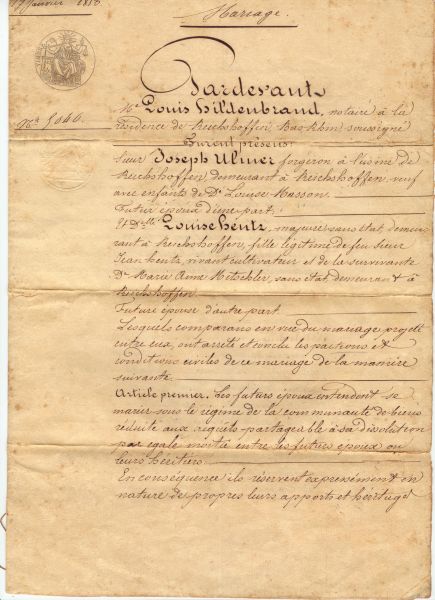 Mariage.
Janvier
N° 5040.
Pardevant
Me Louis Hildenbrand, notaire à la
résidence de Reichshoffen, Bas-Rhin, soussigné
Furent présens:
Sieur Joseph Ulmer forgeron à l'usine de
Reichshoffen, demeurant à Reichshoffen, veuf
avec enfants de De Louise Masson.
Futur époux d'une part.
Et Delle Louise Heutz, majeure sans état, demeu-
rant à Reichshoffen, fille légitime de feu Sieur
Jean Heutz, vivant cultivateur et de la survivante
De Marie Anne, sans état, demeurant à
Reichshoffen
Future épouse d'autre part.
Lesquels comparans en vue du mariage projeté
entre eux, ont arrêté et conclu les pactions et
conditions civiles de ce mariage de la manière
suivante.
Article premier. Les futurs époux entendent se
marier sous le régime de la communauté de biens
réduite aux acquêts partageable à sa dissolution
par égale moitié entre les futurs époux ou
leurs héritiers.
En conséquence ils réservent expressément en
nature de propres leurs apports et héritages